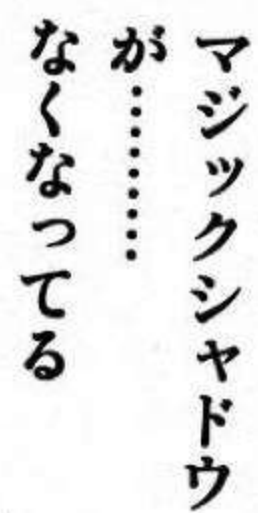 マジックシャドウ
が………
なくなってる